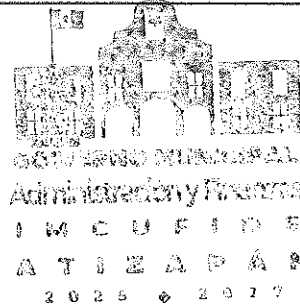 GOBIERNO MUNICIPAL
Administración y Finanzas
I M C U F I D E
A T I Z A P Á N
2 0 2 5 2 0 2 7